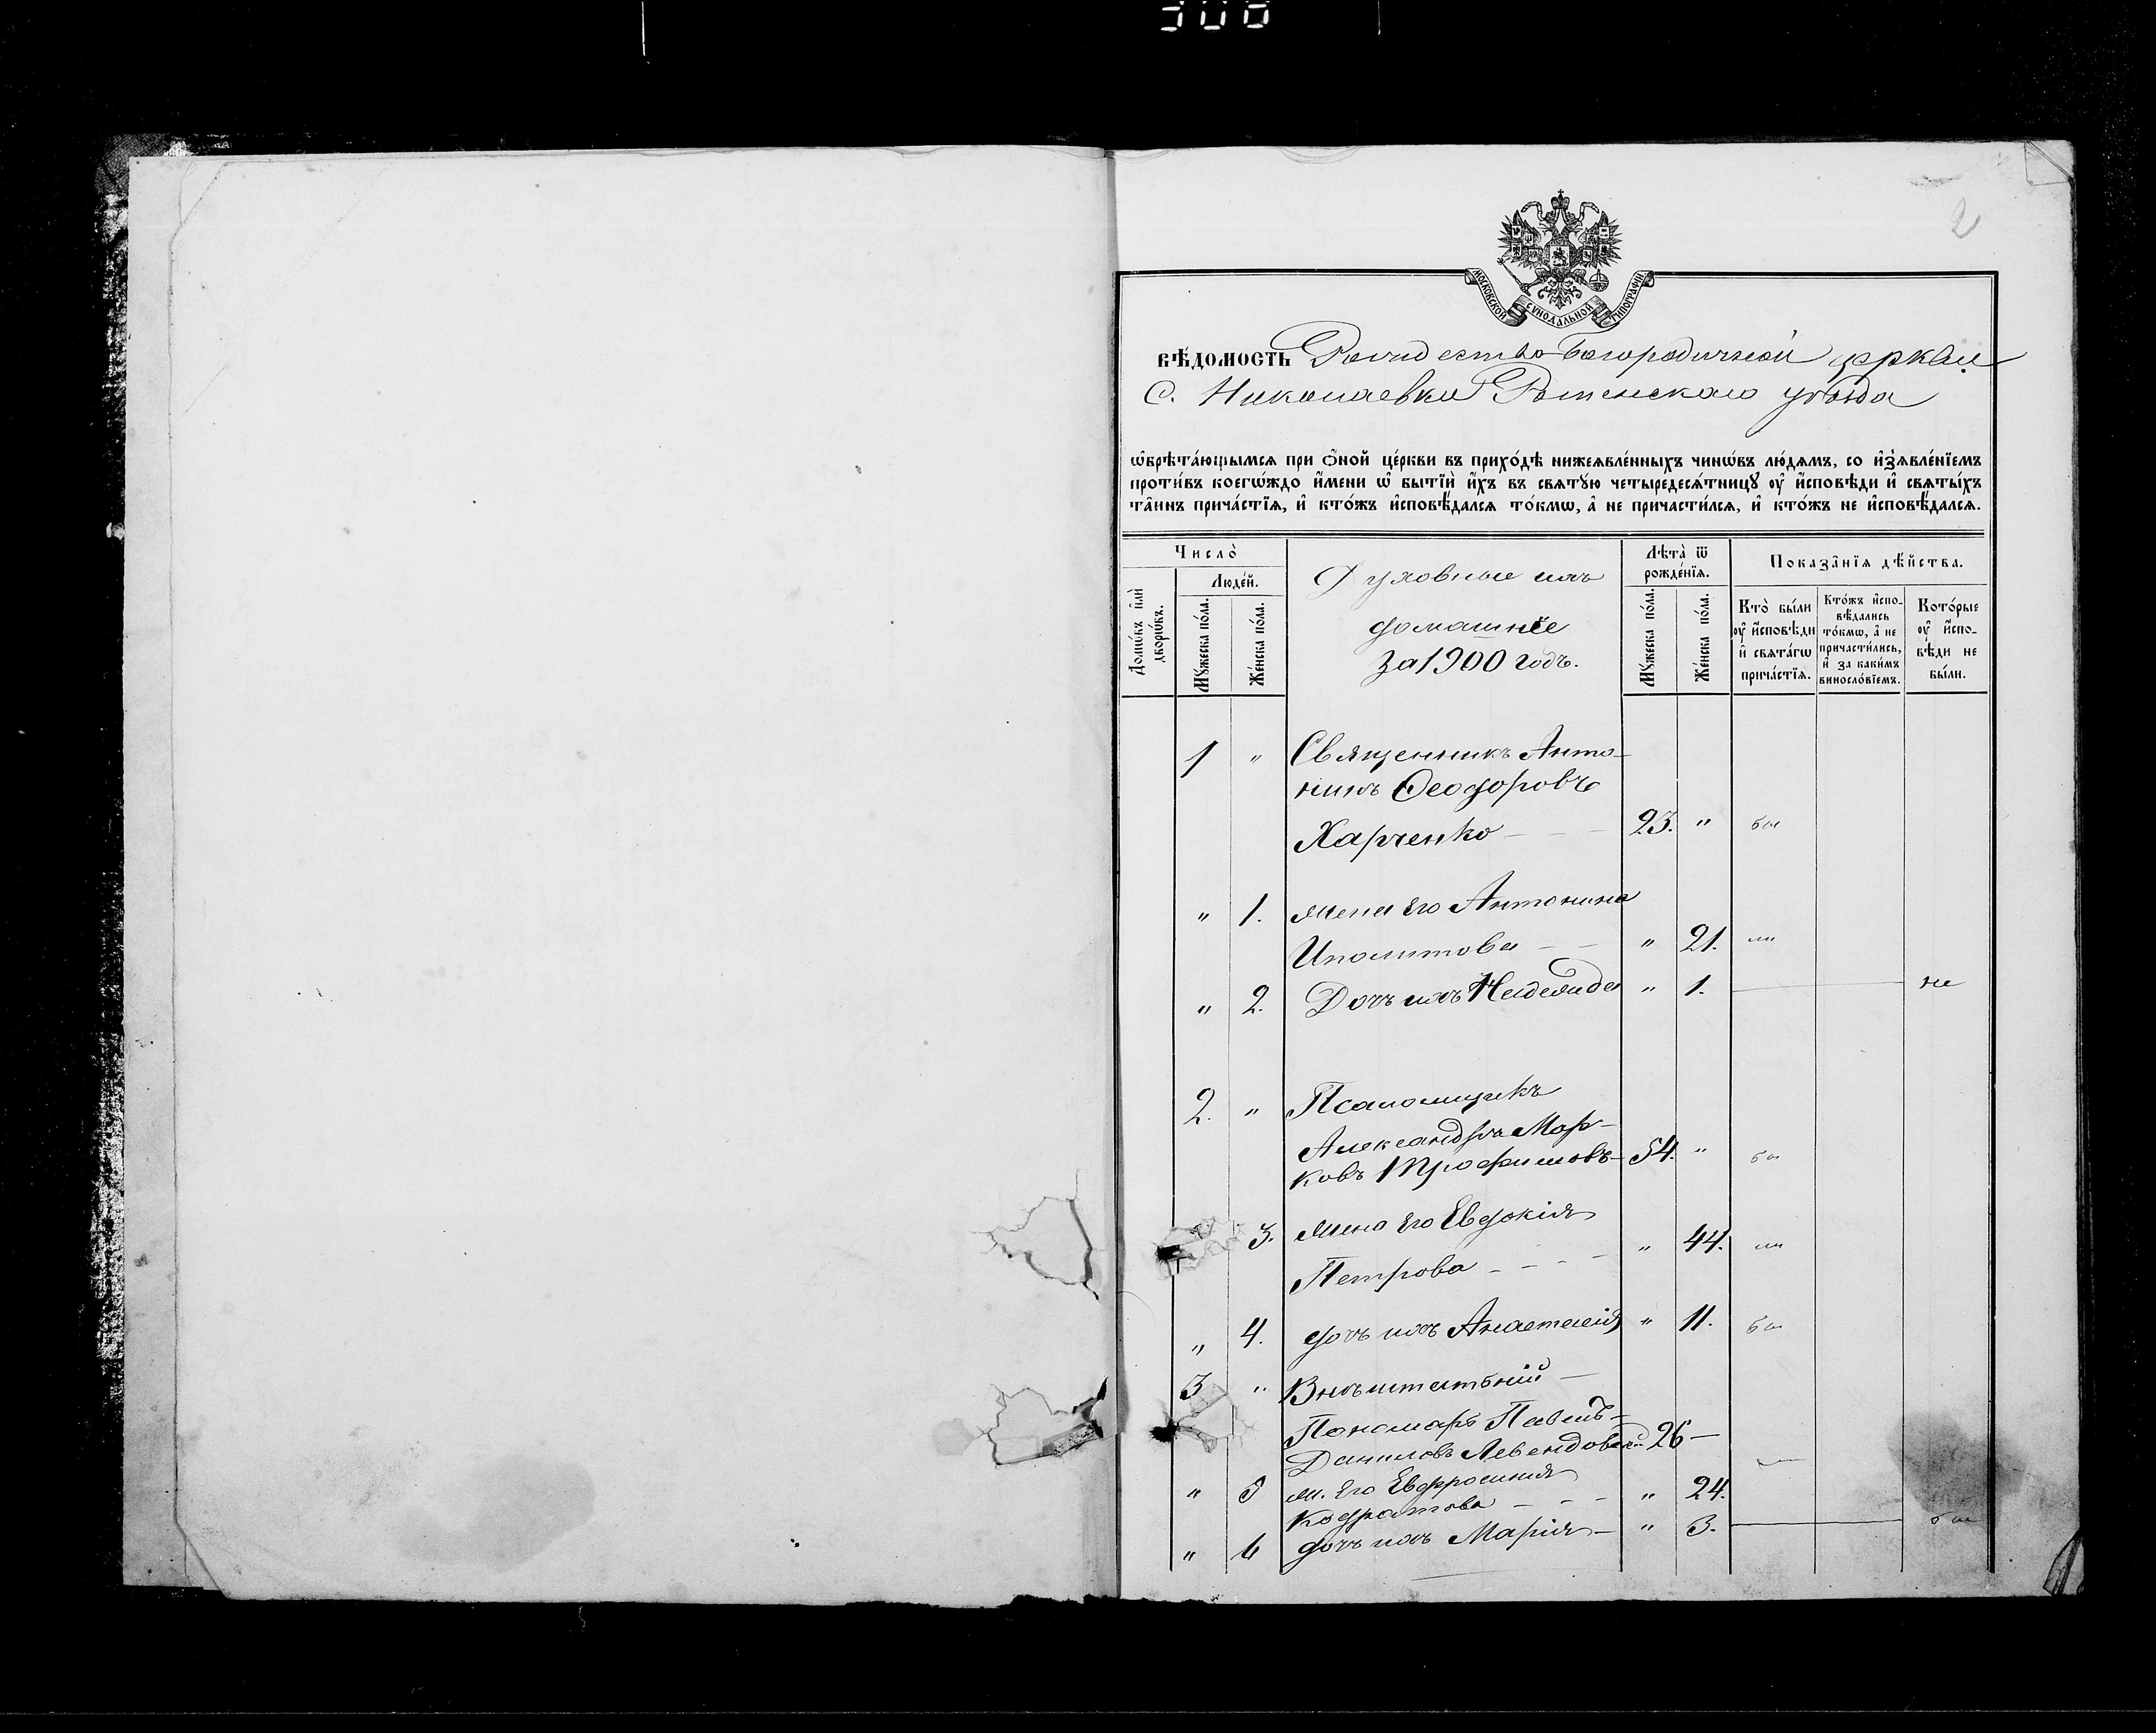 2
МОСКОВСКОЙ СѴНОДАЛЬНОЙ ТИПОГРАФІИ
ВѢ́ДОМОСТЬ Рождество-Богородичной церкви
с. Николаевки Роменскаго уѣзда
ѡ҆брѣта́ющымсѧ при ѻ҆́ной це́ркви въ прихо́дѣ нижеѧвле́нныхъ чинѡ́въ лю́дѧмъ, со и҆з̾ѧвле́нїемъ
проти́въ коегѡ́ждо и҆́мени ѡ҆ бытїѝ и҆́хъ въ свѧтꙋ́ю четыредесѧ́тницꙋ ᲂу҆ и҆́сповѣди и҆ свѧты́хъ
та̑инъ прича́стїѧ, и҆ кто́жъ и҆сповѣ́далсѧ то́кмѡ, а҆ не причасти́лсѧ, и҆ кто́жъ не и҆сповѣ́далсѧ.
Число̀
Домѡ́въ и҆лѝ дворѡ́въ.
Люде́й.
Мꙋ́жеска по́ла.
Же́нска по́ла.
Духовные ихъ
домашнѣе
за 1900 годъ.
Лѣта̀ ѿ рожде́нїѧ.
Мꙋ́жеска по́ла.
Же́нска по́ла.
Показа̑нїѧ дѣ́йства.
Кто̀ бы́ли ᲂу҆ и҆́сповѣди и҆ свѧта́гѡ прича́стїѧ.
Кто́жъ и҆спо-вѣ́дались то́кмѡ, а҆ не причасти́лись, и҆ за каки́мъ виносло́вїемъ.
Кото́рые ᲂу҆ и҆́спо-вѣди не бы́ли.
1 " Священникъ Анто-
нинъ Ѳеодоровъ
Харченко 23. " бы
" 1. Жена Его Антонина
Иполитова " 21. ли
" 2. Дочь ихъ Надежда " 1. не
2. " Псаломщикъ
Александръ Мар-
ковъ Трофимовъ 54. " бы
3. Жена Его Евдокія
Петрова " 44. ли
" 4. дочь ихъ Анастасія " 11. бы
3 " Внѣштатный
Пономарь Павелъ
Даниловъ Левендовскій 26
" 5 ж. Его Евфросинія
Кодратова " 24.
" 6 дочь ихъ Марія " 3. бы